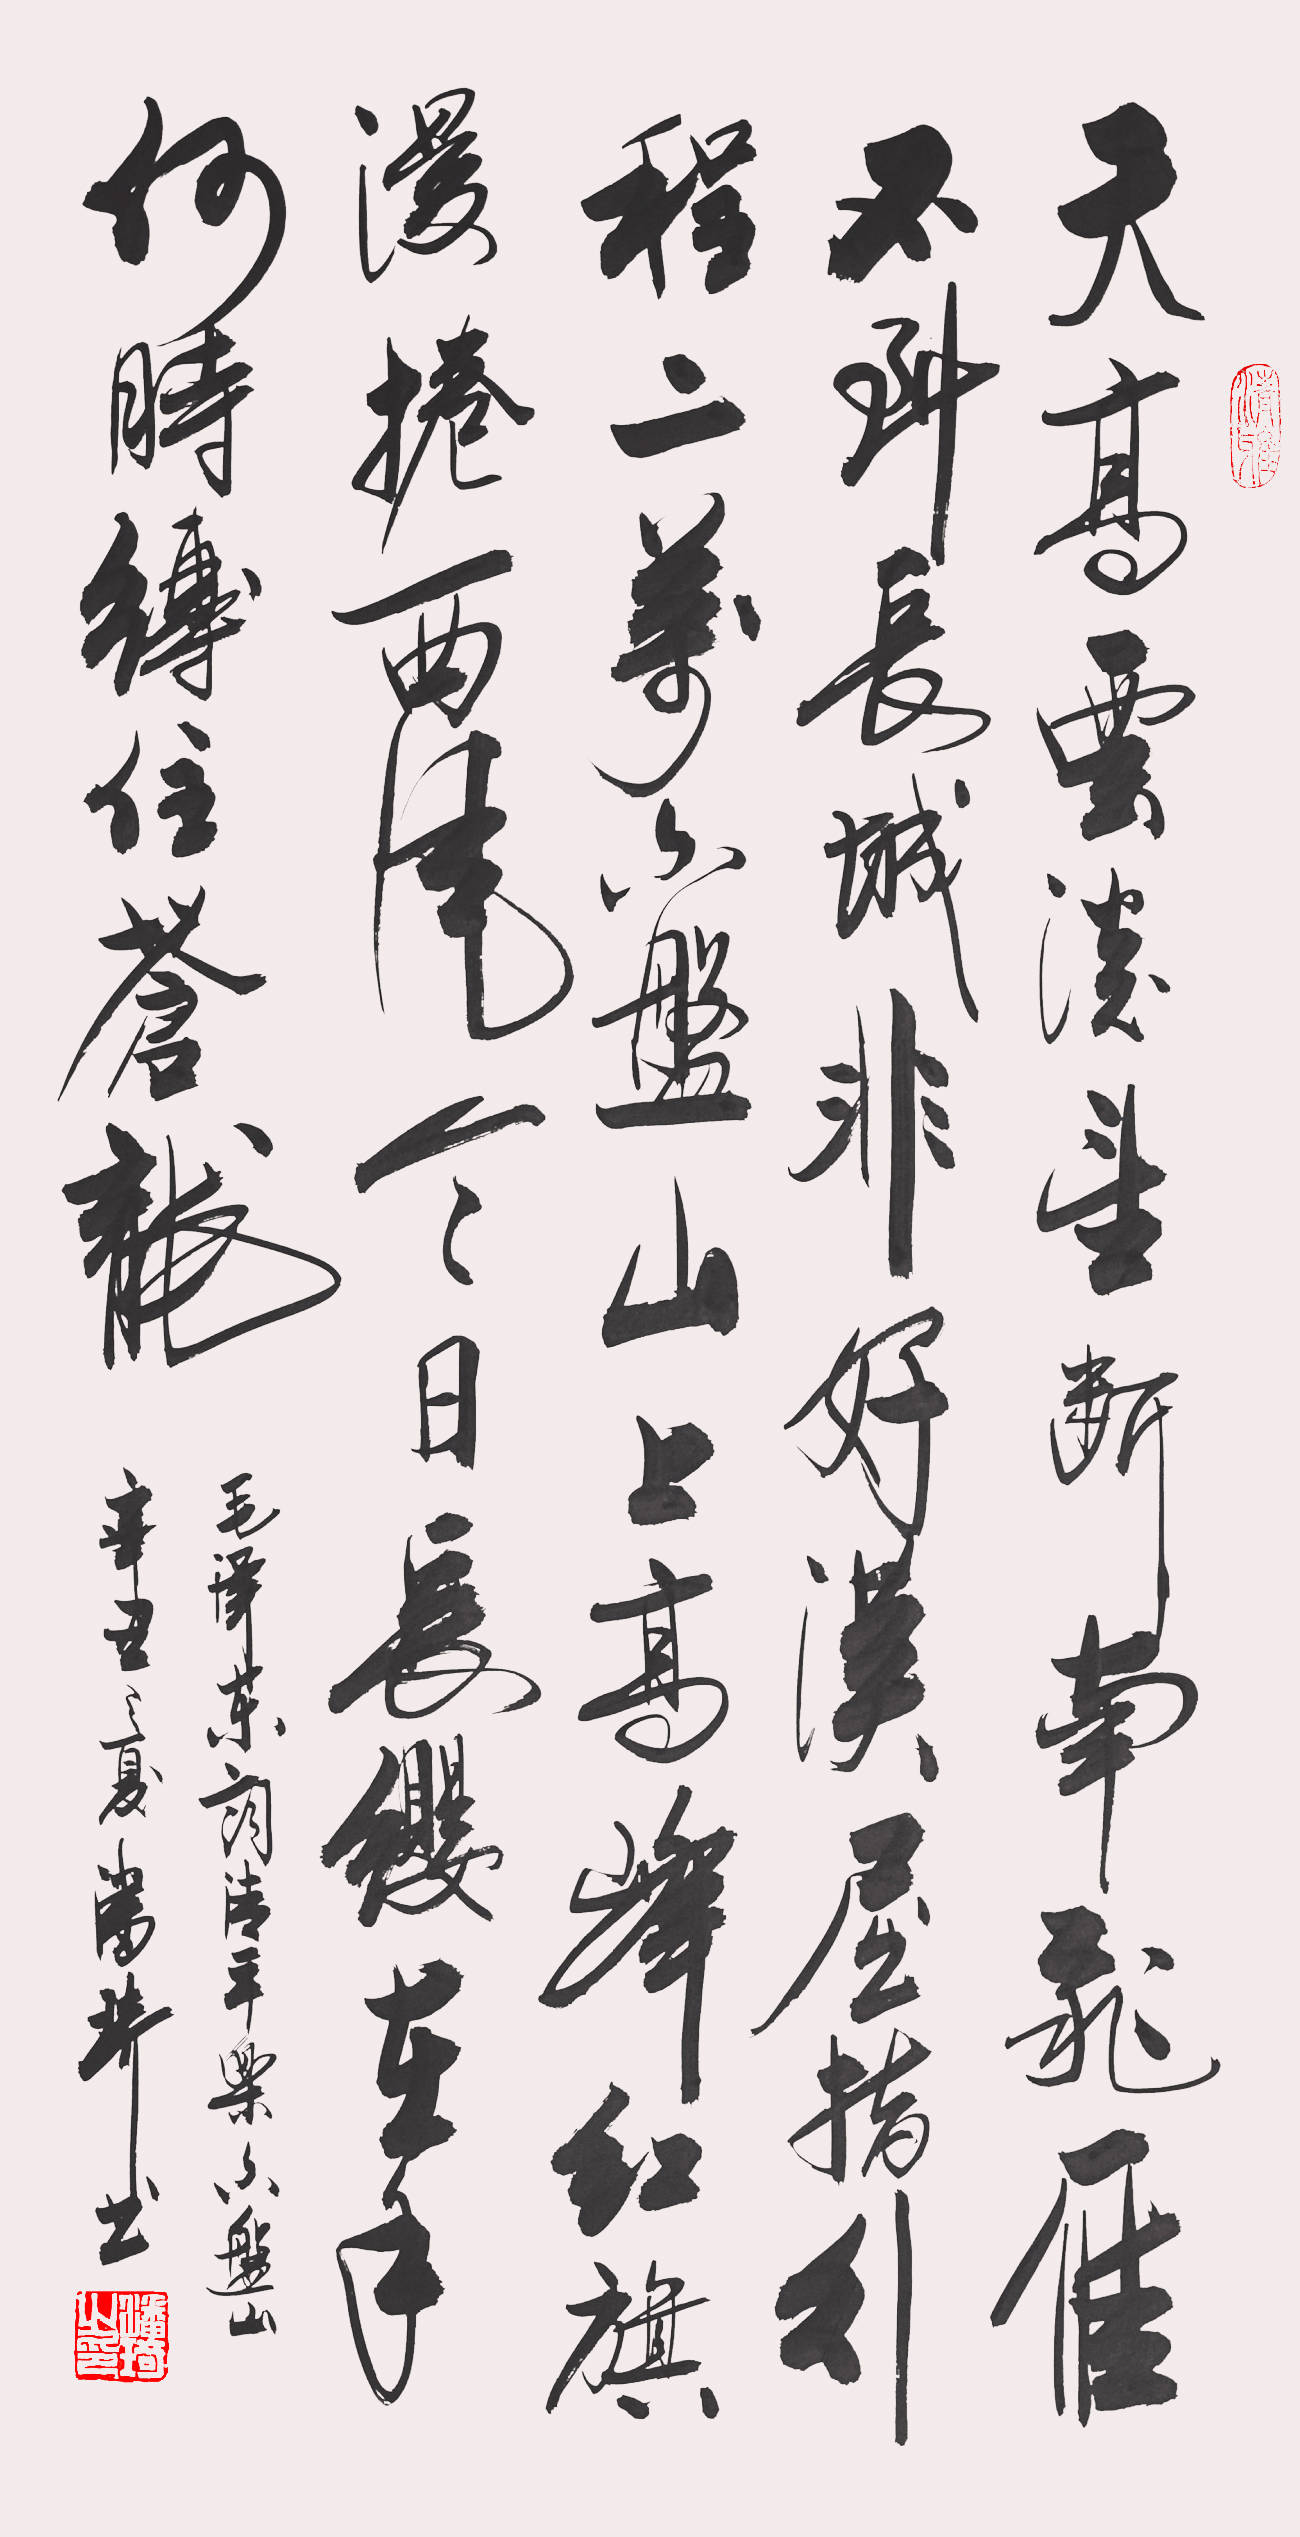 天高雲淡望斷南飛雁
不到長城非好漢屈指行
程二萬六盤山上高峰红旗
漫捲西風今日長纓在手
何時縛住蒼龍
毛澤東詞清平樂六盤山
辛丑之夏潘琦书
潘琦之印